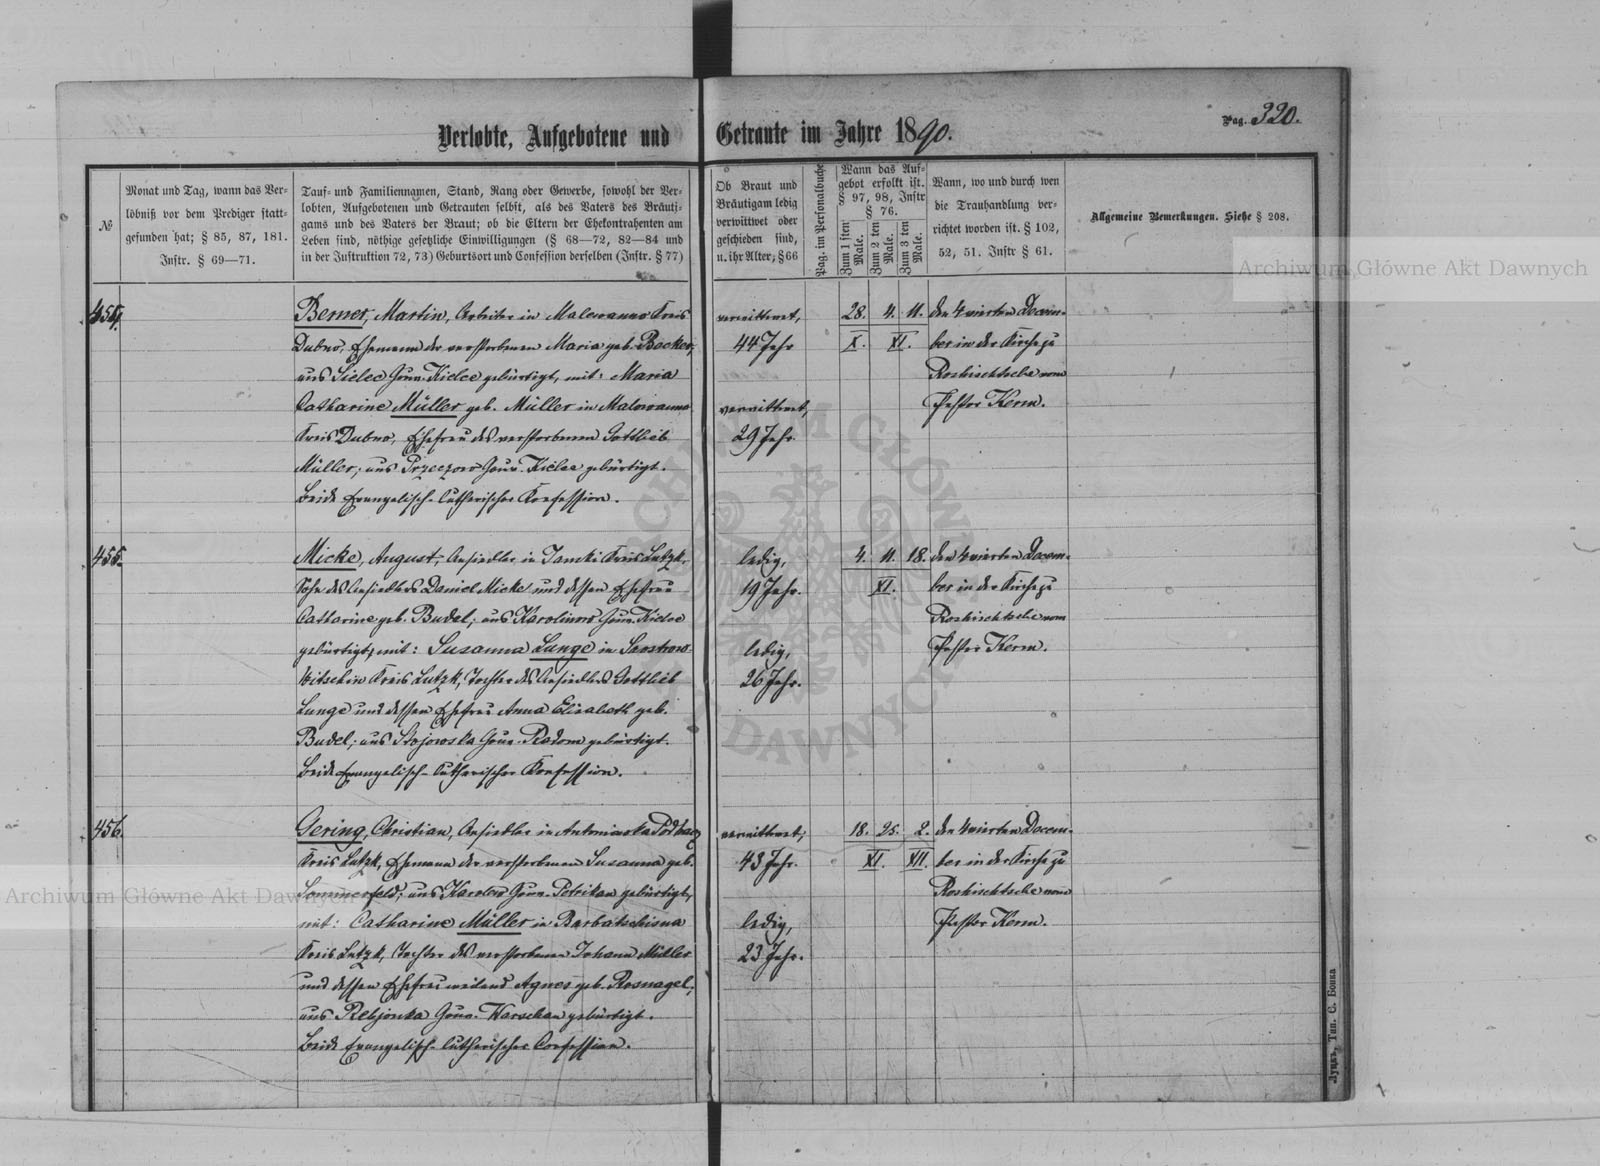 Pag. 320.
Verlobte, Aufgebotene und Getraute im Jahre 1890.
№
Monat und Tag, wann das Ver-
löbniß vor dem Prediger statt-
gefunden hat; § 85, 87, 181.
Instr. § 69—71.
Tauf- und Familiennamen, Stand, Rang oder Gewerbe, sowohl der Ver-
lobten, Aufgebotenen und Getrauten selbst, als des Vaters des Bräuti-
gams und des Vaters der Braut; ob die Eltern der Ehekontrahenten am
Leben sind, nöthige gesetzliche Einwilligungen (§ 68—72, 82—84 und
in der Instruktion 72, 73) Geburtsort und Confession derselben (Instr. § 77)
Ob Braut und
Bräutigam ledig
verwittwet oder
geschieden sind,
u. ihr Alter; § 66
Pag. im Personalbuche
Wann das Auf-
gebot erfolgt ist.
§ 97, 98, Instr
§ 76.
Zum 1 sten Male.
Zum 2 ten Male.
Zum 3 ten Male.
Wann, wo und durch wen
die Trauhandlung ver-
richtet worden ist. § 102,
52, 51. Instr § 61.
Allgemeine Bemerkungen. Siehe § 208.
454.
Berner, Martin, Arbeiter in Malewanno Kreis
Dubno, Ehemann der verstorbenen Maria geb. Becker,
aus Sielec Gouv. Kielce gebürtigt, mit: Maria
Catharine Müller geb. Müller in Malowanna
Kreis Dubno, Ehefrau des verstorbenen Gottlieb
Müller, aus Przeczow Gouv. Kielce gebürtigt.
Beide Evangelisch-lutherischer Konfession.
verwittwet,
44 Jahr
verwittwet,
29 Jahr.
28. 4. 11.
X. XI.
den 4 vierten Decem-
ber in der Kirche zu
Roshischtsche vom
Pastor Kerm.
455.
Micke, August, Ansiedler in Jamki Kreis Lutzk,
Sohn des Ansiedlers Daniel Micke und dessen Ehefrau
Catharine geb. Budel, aus Karolinow Gouv. Kielce
gebürtigt, mit: Susanna Lange in
Kreis Lutzk, Tochter des Ansiedlers Gottlieb
Lange und dessen Ehefrau Anna Elisabeth geb.
Budel, aus Stojowska Gouv. Radom gebürtigt.
Beide Evangelisch-lutherischer Konfession.
ledig,
19 Jahr.
ledig,
26 Jahr.
4. 11. 18.
XI.
den 4 vierten Decem-
ber in der Kirche zu
Roshischtsche vom
Pastor Kerm.
456.
Gering, Christian, Ansiedler in Antoniowka
Kreis Lutzk, Ehemann der verstorbenen Susanna geb.
Sommerfeld, aus Karolew Gouv. Petrikau gebürtigt,
mit: Catharine Müller in Barbatschisna
Kreis Lutzk, Tochter des verstorbenen Johann Müller
und dessen Ehefrau weiland Agnes geb. Rosnagel,
aus Rebjonka Gouv. Warschau gebürtigt.
Beide Evangelisch-lutherischer Confession.
verwittwet,
43 Jahr.
ledig,
23 Jahr.
18. 25. 2.
XI. XII.
den 4 vierten Decem-
ber in der Kirche zu
Roshischtsche vom
Pastor Kerm.
Луцкъ, Тип. С. Бонка
Archiwum Główne Akt Dawnych
Archiwum Główne Akt Dawnych
ARCHIWUM GŁÓWNE AKT DAWNYCH